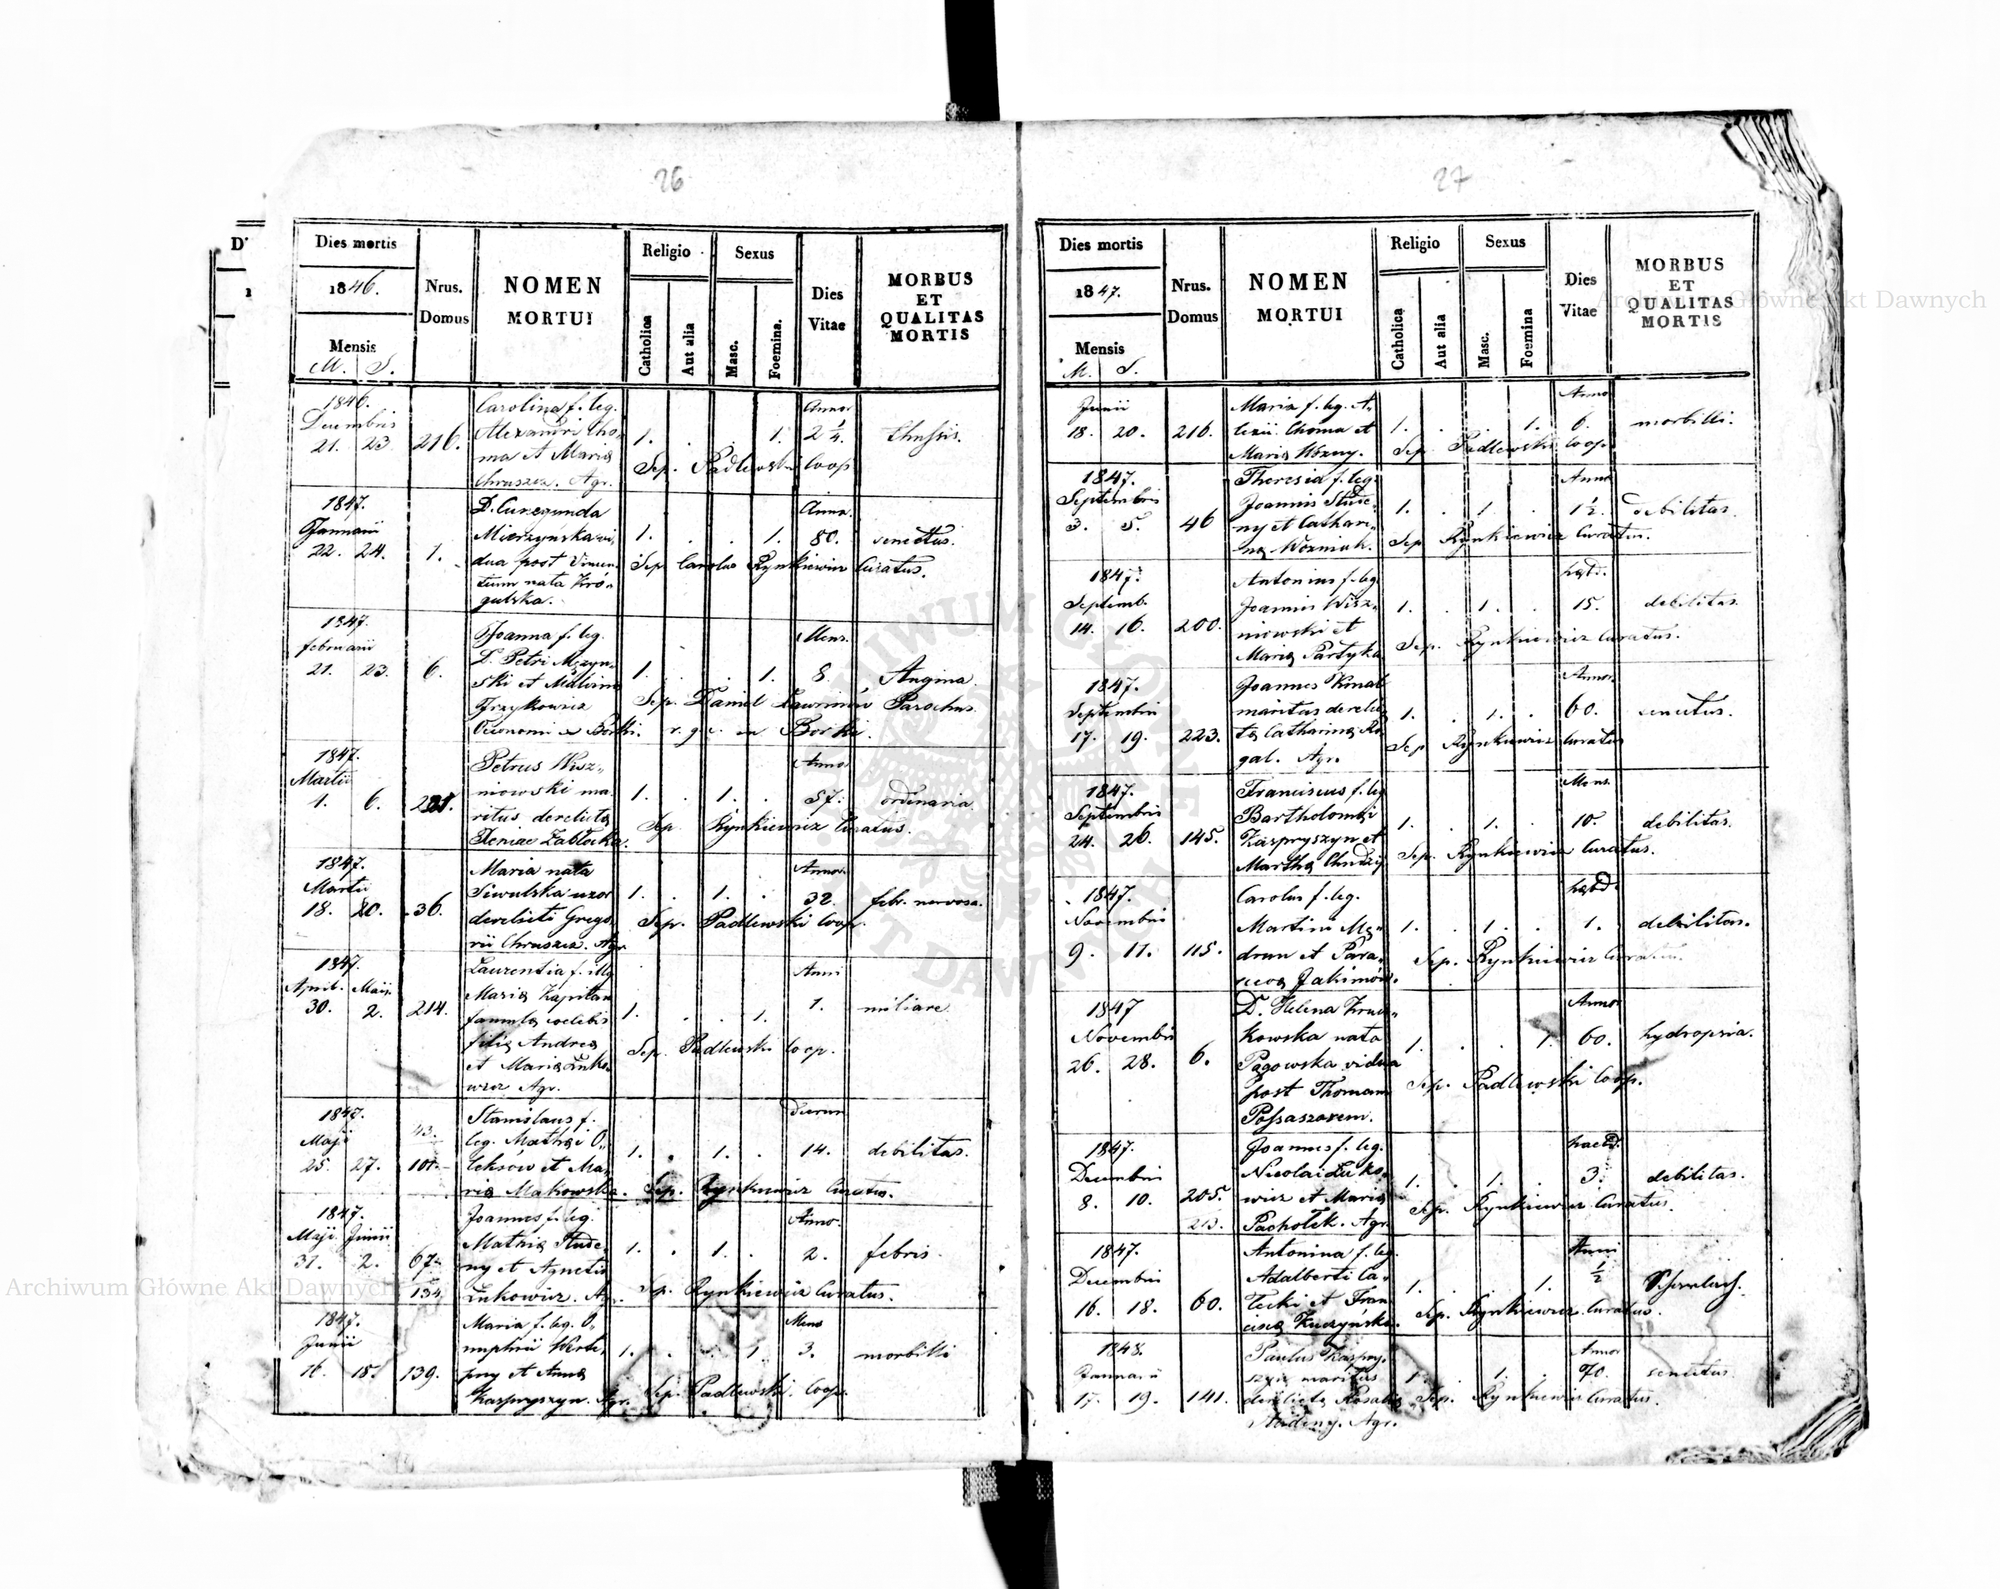 26
Dies mortis
1846.
Mensis
M. S.
Nrus.
Domus
NOMEN
MORTUI
Religio
Catholica
Aut alia
Sexus
Masc.
Foemina.
Dies
Vitae
MORBUS
ET
QUALITAS
MORTIS
1846.
Decembris
21. 23. 216.
Carolina f. leg.
Alexandri Cho„
ma et Maria
Chruszcz. Agr.
1. . . 1.
Annor
2 1/4.
Sep. Padlewski Coop
1847.
Januarii
22. 24. 1.
D. Cunegunda
Mierzyńska vi„
dua post Vincen„
tium nata Kro„
gulska.
1. . . 1.
Annor.
80.
senectus.
Sep. Carolus Rynkiewicz Curatus.
1847.
februarii
21. 23. 6.
Joanna f. leg.
D. Petri
ski et Malvina
Oeconomi ex Borki.
1. . . 1.
Mens.
8.
Angina.
Sep. Daniel Ławrinów Parochus
r. g. c. in Borki.
1847.
Martii
1. 6.
Petrus Wisz„
niowski ma„
ritus derelicta
Xeniae Zabłocka.
1. . 1. .
Annor
57.
ordinaria.
Sep. Rynkiewicz Curatus.
1847.
Martii
18. 20. 36.
Maria nata
Siwulska uxor
derelicti Grego„
rii Chruszcz. Agr.
1. . 1. .
Annor.
32.
febr. nervosa.
Sep. Padlewski Coop.
1847.
April. Maji.
30. 2. 214.
Laurentia f. illeg.
Maria Kapitan
famula coelebis
filia Andrea
et Maria Łuko„
wicz Agr.
1. . . 1.
Anni
1.
miliare
Sep. Padlewski Coop.
1847.
Maji
25. 27.
43.
101.
Stanislaus f.
leg. Mathei O„
leksów et Ma„
ria Makowska.
1. . 1. .
Dierum
14.
debilitas.
Sep. Rynkiewicz Curatus.
1847.
Maji. Junii
31. 2. 67.
134.
Joannes f. leg.
Mathia Stude„
ny et Agnetis
Łukowicz. Agr.
1. . 1. .
Annor.
2.
febris.
Sep. Rynkiewicz Curatus.
1847.
Junii
16. 18. 139.
Maria f. leg. O„
nuphrii Werbi„
et Anna
Kaspryszyn. Agr.
1. . . 1.
Mens
3.
morbilli
Sep. Padlewski. Coop.
27
Dies mortis
1847.
Mensis
M. S.
Nrus.
Domus
NOMEN
MORTUI
Religio
Catholica
Aut alia
Sexus
Masc.
Foemina
Dies
Vitae
MORBUS
ET
QUALITAS
MORTIS
Junii
18. 20. 216.
Maria f. leg. A„
lexii. Choma et
Maria Woźny.
1. . . 1.
Annor
6.
morbilli.
Sep. Padlewski Coop.
1847.
Septembris
3. 5. 46
Theresia f. leg.
Joannis Stude„
ny et Cathari„
na Woźniak.
1. . 1. .
Annor
1 1/2.
debilitas.
Sep. Rynkiewicz Curatus.
1847.
Septemb.
14. 16. 200.
Antonius f. leg.
Joannis Wisz„
niowski et
Maria Partyka
1. . 1. .
15.
debilitas.
Sep. Rynkiewicz Curatus.
1847.
Septembris
17. 19. 223.
Joannes
maritus derelic„
ta Catharina Ro„
gal. Agr.
1. . 1. .
Annor.
60.
senectus.
Sep. Rynkiewicz Curatus
1847.
Septembris
24. 26. 145.
Franciscus f. leg
Bartholomei
Kaspryszyn et
Martha
1. . 1. .
Mens.
10.
debilitas.
Sep. Rynkiewicz Curatus.
1847.
Novembris
9. 11. 115.
Carolus f. leg.
Martini
et Para„
sceva Jakimów.
1. . 1. .
1.
debilitas.
Sep. Rynkiewicz Curatus.
1847
Novembris
26. 28. 6.
D. Helena Kru„
kowska nata
Pagowska vidua
post Thomam
Possessorem.
1. . . 1.
Annor
60.
hydropsia.
Sep. Padlewski Coop.
1847.
Decembris
8. 10. 205.
213.
Joannes f. leg.
Nicolai Łuko„
wicz et Maria
Pachołek. Agr.
1. . 1. .
3.
debilitas.
Sep. Rynkiewicz Curatus.
1847.
Decembris
16. 18. 60.
Antonina f. leg.
Adalberti Ca„
łecki et Fran„
cisca Kuczyńska.
1. . . 1.
Anni
1/2
Sep. Rynkiewicz Curatus.
1848.
Januarii
17. 19. 141.
Paulus Kaspry„
szyn maritus
derelicta Rosalia
Studeny. Agr.
1. . 1. .
Annor
70.
senectus.
Sep. Rynkiewicz Curatus.
Archiwum Główne Akt Dawnych
Archiwum Główne Akt Dawnych
ARCHIWUM GŁÓWNE AKT DAWNYCH